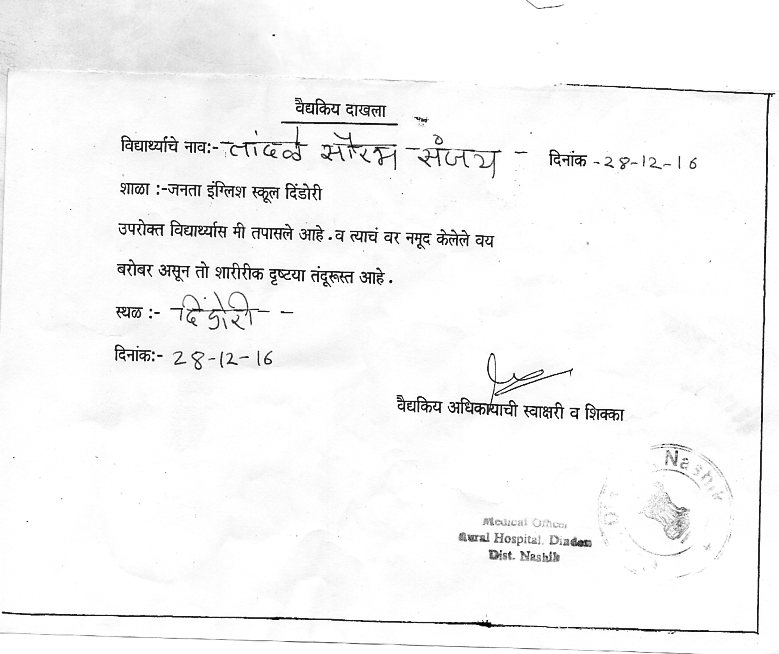 वैद्यकिय दाखला
विद्यार्थ्याचे नाव:- तांदळे सौरभ संजय - दिनांक - 28-12-16
शाळा :-जनता इंग्लिश स्कूल दिंडोरी
उपरोक्त विद्यार्थ्यास मी तपासले आहे.व त्याचं वर नमूद केलेले वय
बरोबर असून तो शारीरीक दृष्टया तंदूरूस्त आहे.
स्थळ :- दिंडोरी - -
दिनांक:- 28-12-16
वैद्यकिय अधिकार्‍याची स्वाक्षरी व शिक्का
Nashik
Medical Officer
Rural Hospital, Dindori
Dist. Nashik